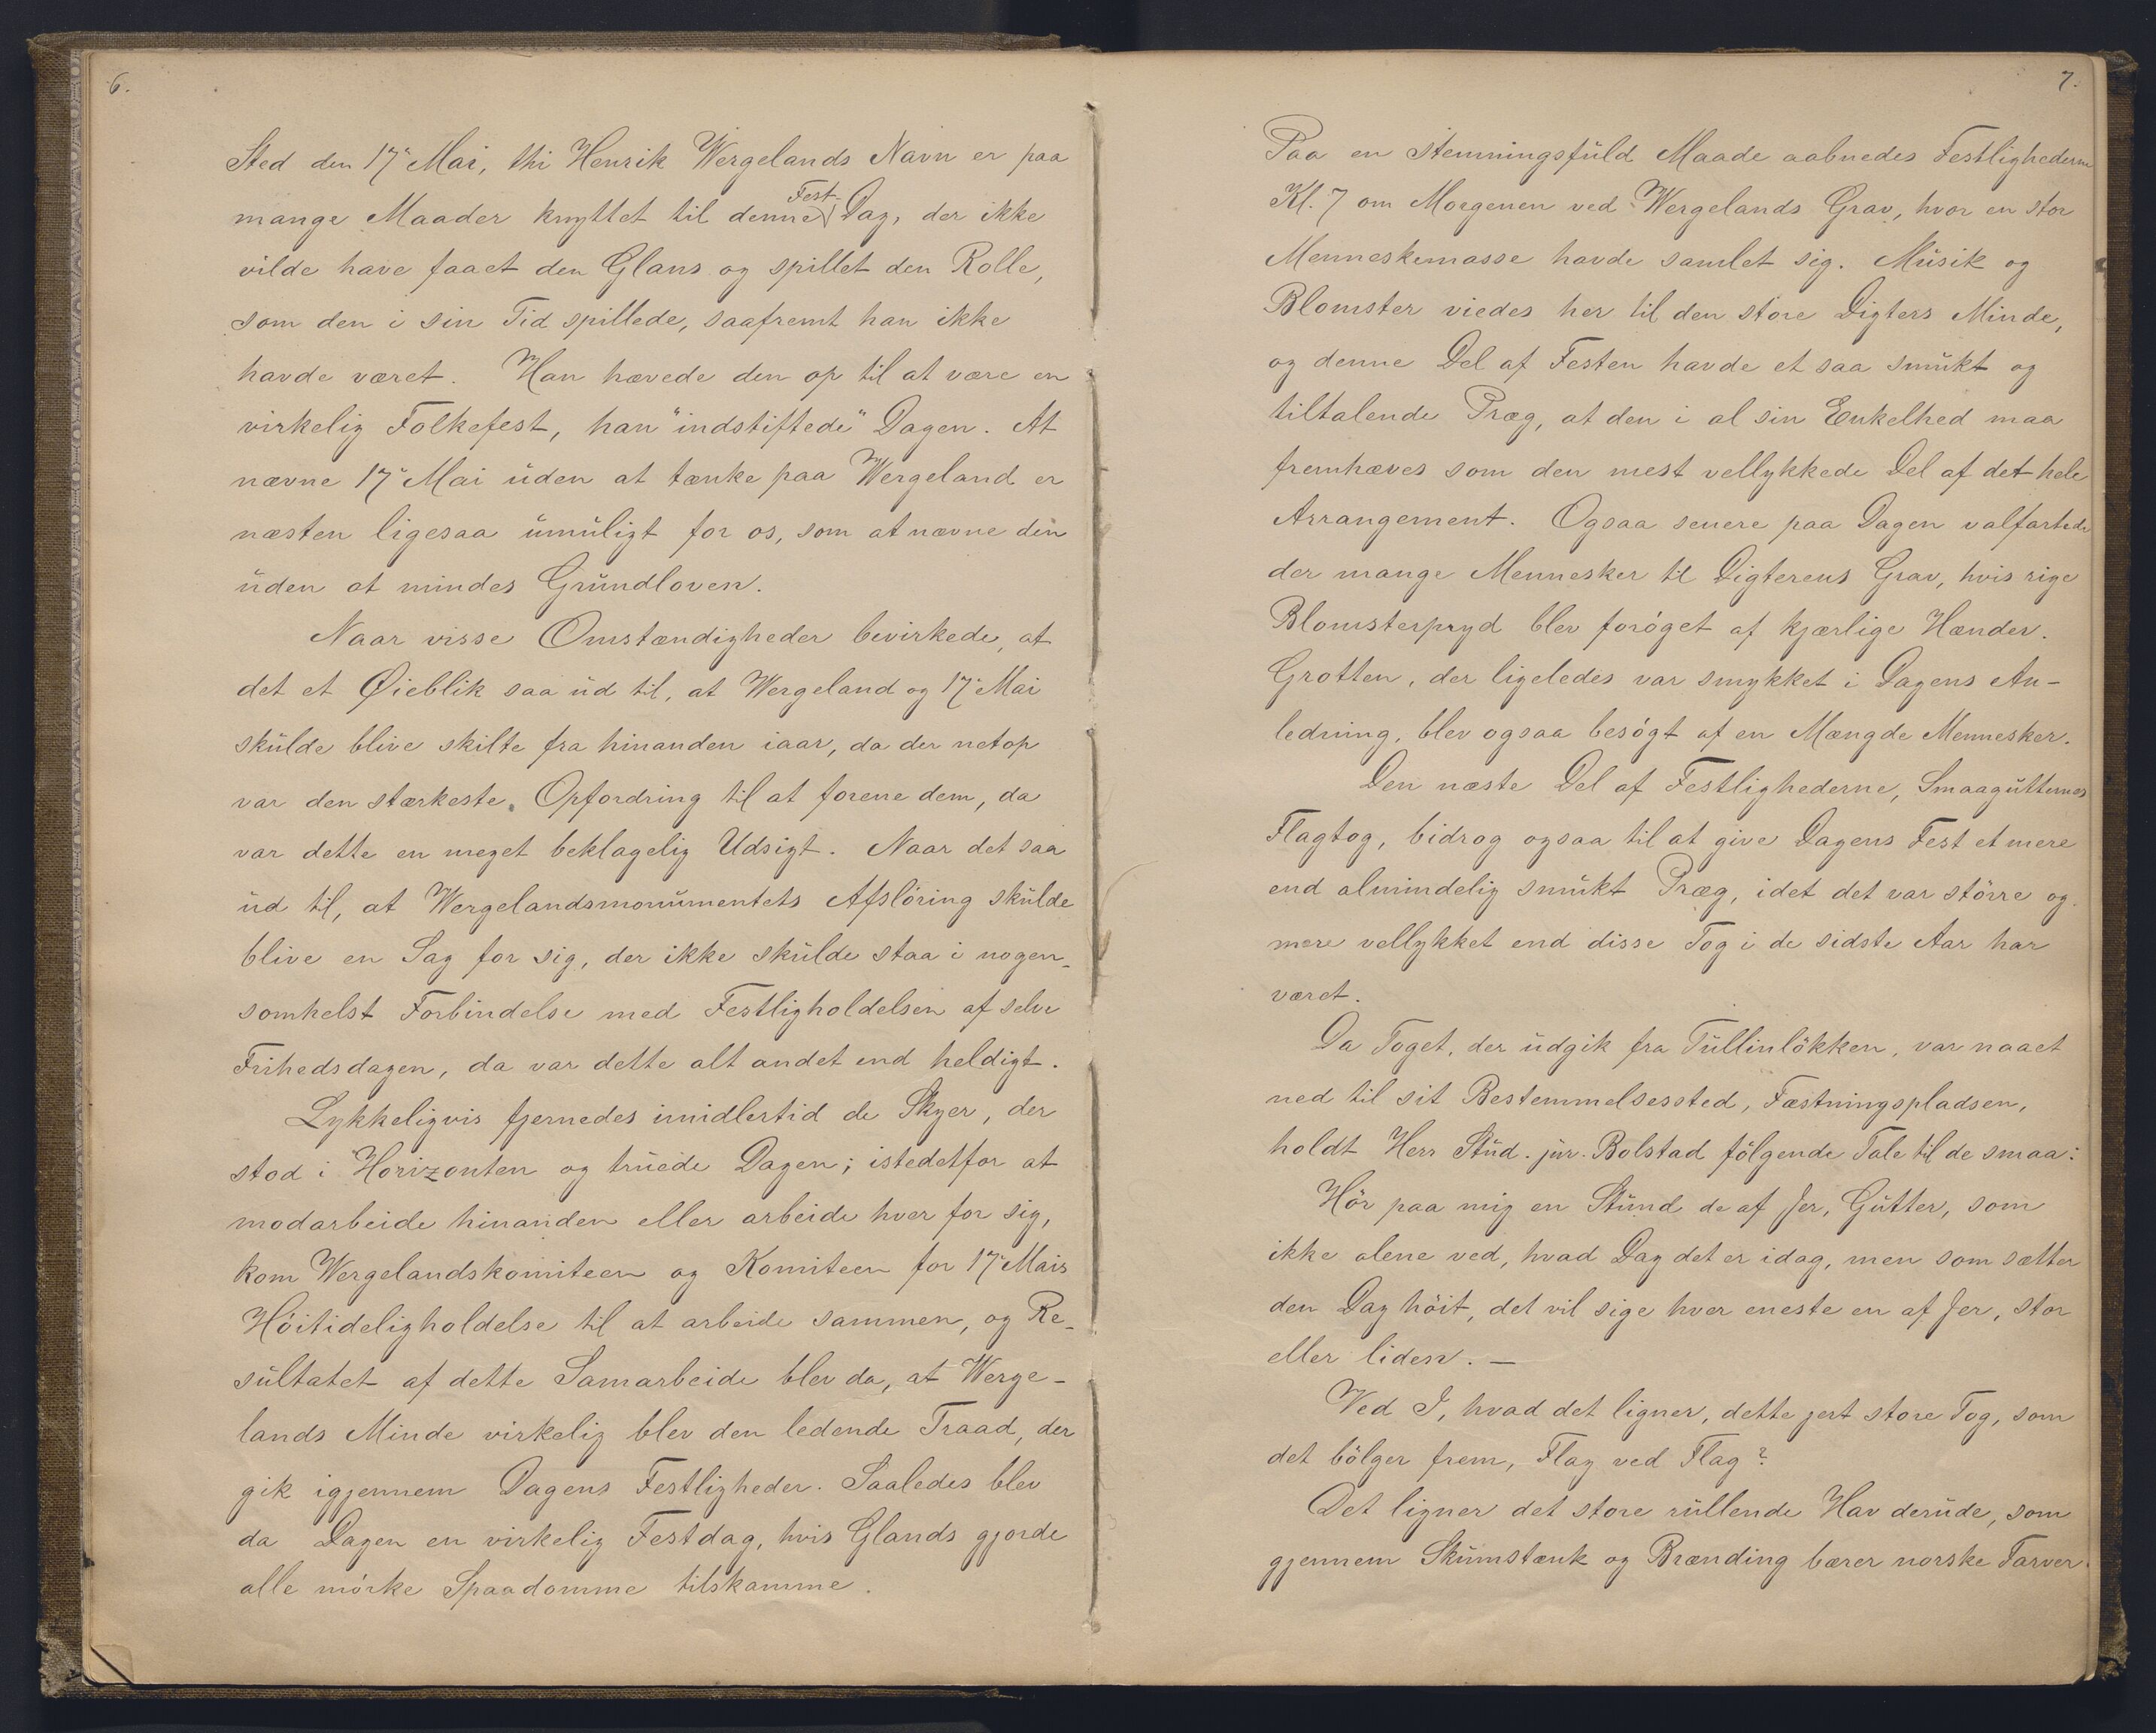 6.
Sted den 17' Mai, thi Henrik Wergelands Navn er paa
mange Maader knyttet til denne Fest-Dag, der ikke
vilde have faaet den Glans og spillet den Rolle,
som den i sin Tid spillede, saafremt han ikke
havde været. Han hævede den op til at være en
virkelig Folkefest, han "indstiftede" Dagen. At
nævne 17' Mai uden at tænke paa Wergeland er
næsten ligesaa umuligt for os, som at nævne den
uden at mindes Grundloven.
Naar visse Omstændigheder bevirkede, at
det et Øieblik saa ud til, at Wergeland og 17' Mai
skulde blive skilte fra hinanden iaar, da der netop
var den stærkeste Opfordring til at forene dem, da
var dette en meget beklagelig Udsigt. Naar det saa
ud til, at Wergelandsmonumentets Afsløring skulde
blive en Sag for sig, der ikke skulde staa i nogen-
somhelst Forbindelse med Festligholdelsen af selve
Frihedsdagen, da var dette alt andet end heldigt.
Lykkeligvis fjernedes imidlertid de Skyer, der
stod i Horizonten og truede Dagen; istedetfor at
modarbeide hinanden eller arbeide hver for sig,
kom Wergelandskomiteen og Komiteen for 17' Mais
Höitideligholdelse til at arbeide sammen, og Re-
sultatet af dette Samarbeide blev da, at Werge-
lands Minde virkelig blev den ledende Traad, der
gik igjennem Dagens Festligheder. Saaledes blev
da Dagen en virkelig Festdag, hvis Glands gjorde
alle mörke Spaadomme tilskamme.
7.
Paa en stemningsfuld Maade aabnedes Festlighederne
Kl. 7 om Morgenen ved Wergelands Grav, hvor en stor
Menneskemasse havde samlet sig. Musik og
Blomster viedes her til den store Digters Minde,
og denne Del af Festen havde et saa smukt og
tiltalende Præg, at den i al sin Enkelhed maa
fremhæves som den mest vellykkede Del af det hele
Arrangement. Ogsaa senere paa Dagen valfartede
der mange Mennesker til Digterens Grav, hvis rige
Blomsterpryd blev foröget af kjærlige Hænder.
Grotten, der ligeledes var smykket i Dagens An-
ledning, blev ogsaa besögt af en Mængde Mennesker.
Den næste Del af Festlighederne, Smaagutternes
Flagtog, bidrog ogsaa til at give Dagens Fest et mere
end almindelig smukt Præg, idet det var större og
mere vellykket end disse Tog i de sidste Aar har
været.
Da Toget, der udgik fra Tullinlökken, var naaet
ned til sit Bestemmelsessted, Fæstningspladsen,
holdt Herr Stud. jur. Bolstad fölgende Tale til de smaa:
Hör paa mig en Stund de af Jer, Gutter, som
ikke alene ved, hvad Dag det er idag, men som sætter
den Dag höit, det vil sige hver eneste en af Jer, stor
eller liden. —
Ved I, hvad det ligner, dette jert store Tog, som
det bölger frem, Flag ved Flag?
Det ligner det store rullende Hav derude, som
gjennem Skumstænk og Brænding bærer norske Farver.